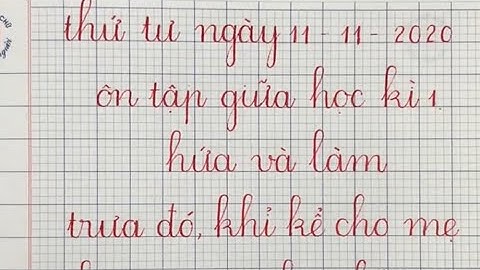 thứ tư ngày 11 - 11 - 2020
ôn tập giữa học kì 1
hứa và làm
trưa đó, khỉ kể cho mẹ